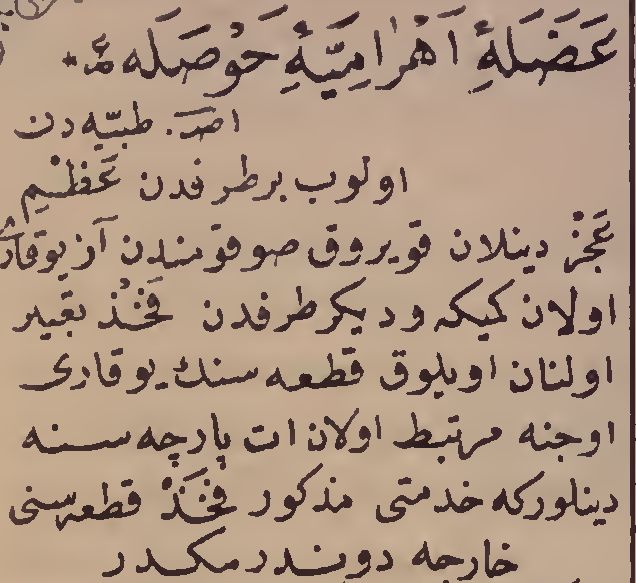 عَضَلَهِٔ اَهْرامِيَّهِٔ حَوْصَلَه
اصـ. طبيّه دن
اولوب برطرفدن عَظْمِ
عَجُزْ دينلان قويروق صوقومندن آز يوقارى
اولان كميكه و ديكر طرفدن فَخُذْ تعبير
اولنان اويلوق قطعه سنك يوقارى
اوجنه مرتبط اولان ات پارچه سنه
دينلوركه خدمتى مذكور فَخُذْ قطعه سنى
خارجه دوندرمكدر